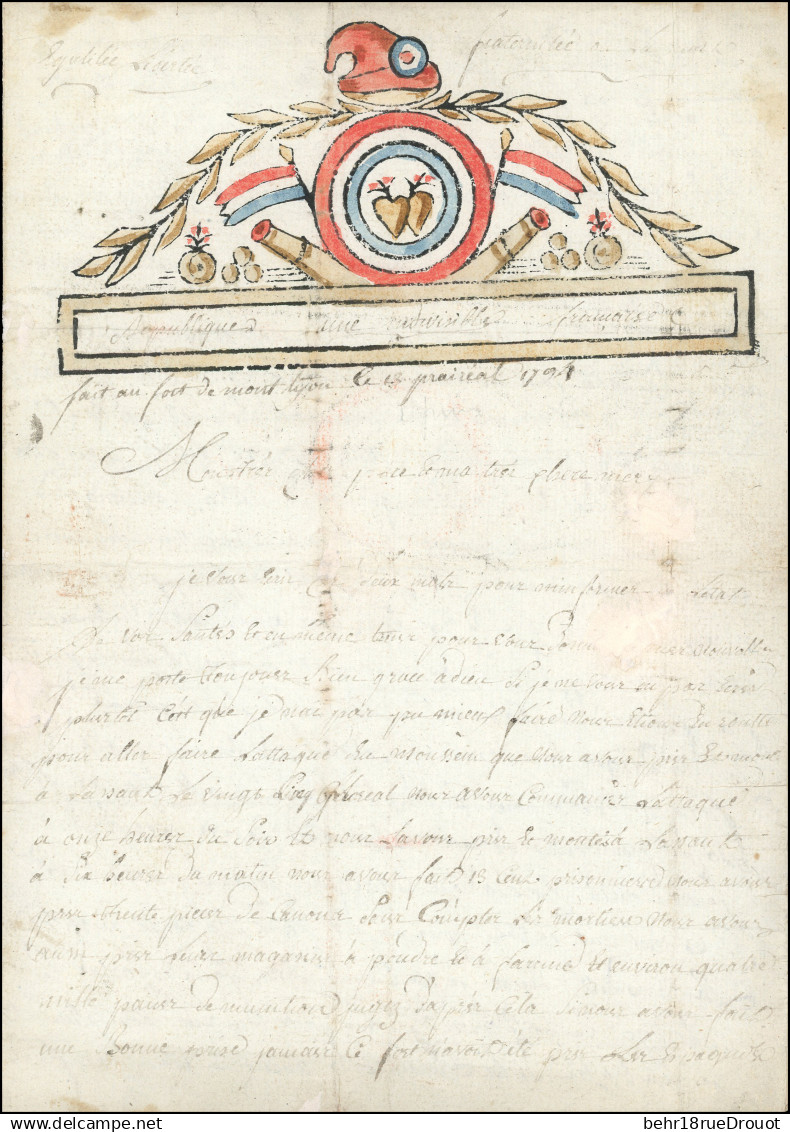 Egalitée Liberté
fraternitée ou La mort
Republique une indivisible francaise
fait au fort de mont lyon le 13 praireal 1794
Mon tres cher pere et ma tres chere mere
je vous Ecris ces deux mots pour m'informer L'etat
De vos santés et en même tems pour vous donner de mes nouvelles
je me porte toujours Bien grace à dieu si je ne vous ai pas écris
plustot C'est que je n'ai pas pu mieux faire nous Etions En routte
pour aller faire L'attaque du que nous avons pris
à Lassaut Le vingt Cinq floreal nous avons Commancés L'attaque
à onze heures du soir Et nous Lavons pris et montés à Lassaut
à six heures du matin nous avons fait 13 Cent prisonniers nous avons
pris trente pieces de Canons sans Compter Les mortiers nous avons
aussi pris Leurs magasins à poudre et à farine Et environ quatre
mille de munition jugez D'apres Cela si nous avons fait
une Bonne prise jamais Ce fort n'avoit été pris Les Espagnols
behr18rueDrouot